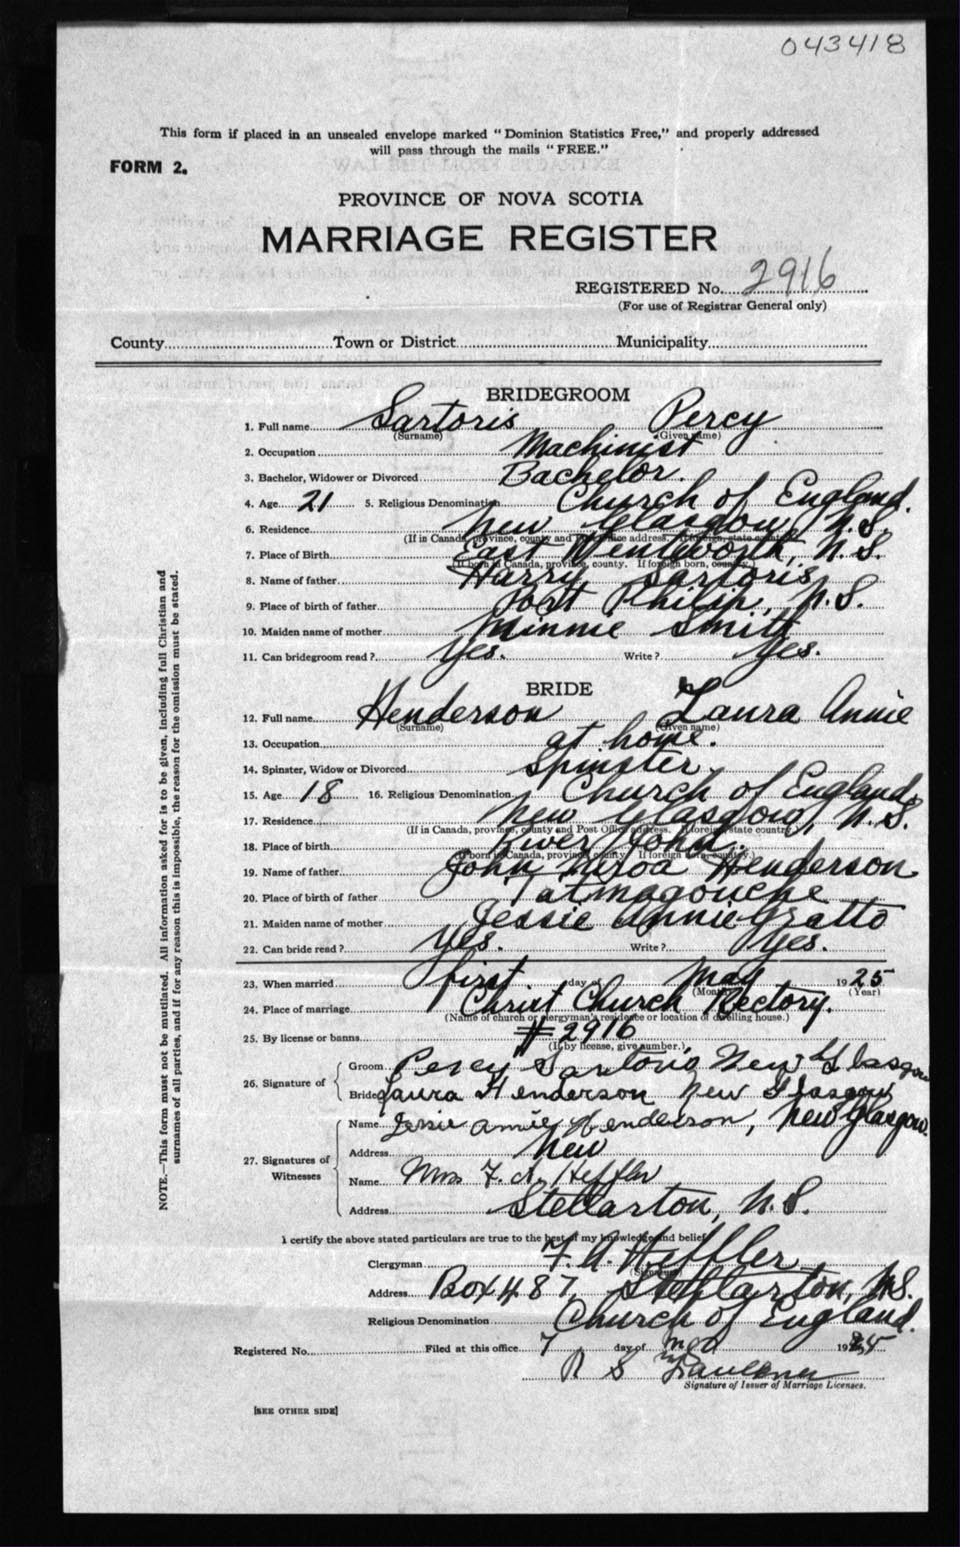 043418
This form if placed in an unsealed envelope marked "Dominion Statistics Free," and properly addressed
will pass through the mails "FREE."
FORM 2.
PROVINCE OF NOVA SCOTIA
MARRIAGE REGISTER
REGISTERED No. 2916
(For use of Registrar General only)
County Town or District Municipality
BRIDEGROOM
1. Full name Sartoris Percy
(Surname) (Given name)
2. Occupation Machinist
3. Bachelor, Widower or Divorced Bachelor.
4. Age 21 5. Religious Denomination Church of England.
6. Residence New Glasgow, N.S.
(If in Canada, province, county and Post Office address. If foreign, state country)
7. Place of Birth East Wentworth, N.S.
(If born in Canada, province, county. If foreign born, country.)
8. Name of father Harry Sartoris
9. Place of birth of father Port Philip, N.S.
10. Maiden name of mother Minnie Smith
11. Can bridegroom read? Yes. Write? Yes.
BRIDE
12. Full name Henderson Laura Annie
(Surname) (Given name)
13. Occupation at home.
14. Spinster, Widow or Divorced Spinster
15. Age 18 16. Religious Denomination Church of England,
17. Residence New Glasgow, N.S.
(If in Canada, province, county and Post Office address. If foreign state country)
18. Place of birth River John.
(If born in Canada, province, county. If foreign born, country.)
19. Name of father John Henderson
20. Place of birth of father Tatmagouche
21. Maiden name of mother Jessie Annie Gratto
22. Can bride read? Yes. Write? Yes.
23. When married first day of May 1925
(Month) (Year)
24. Place of marriage Christ Church Rectory.
(Name of church or clergyman's residence or location of dwelling house.)
25. By license or banns #2916
(If by license, give number.)
26. Signature of
Groom Percy Sartoris New Glasgow
Bride Laura Henderson New Glasgow
27. Signatures of Witnesses
Name Jessie Annie Henderson, New Glasgow.
Address New
Name Mrs F. A. Heffler
Address Stellarton, N.S.
I certify the above stated particulars are true to the best of my knowledge and belief
Clergyman F. A. Heffler
(Signature)
Address Box 487, Stellarton, N.S.
Religious Denomination Church of England.
Registered No. Filed at this office 7 day of 1925
R S Faulkner
Signature of Issuer of Marriage Licenses.
[SEE OTHER SIDE]
NOTE.—This form must not be mutilated. All information asked for is to be given, including full Christian and
surnames of all parties, and if for any reason this is impossible, the reason for the omission must be stated.